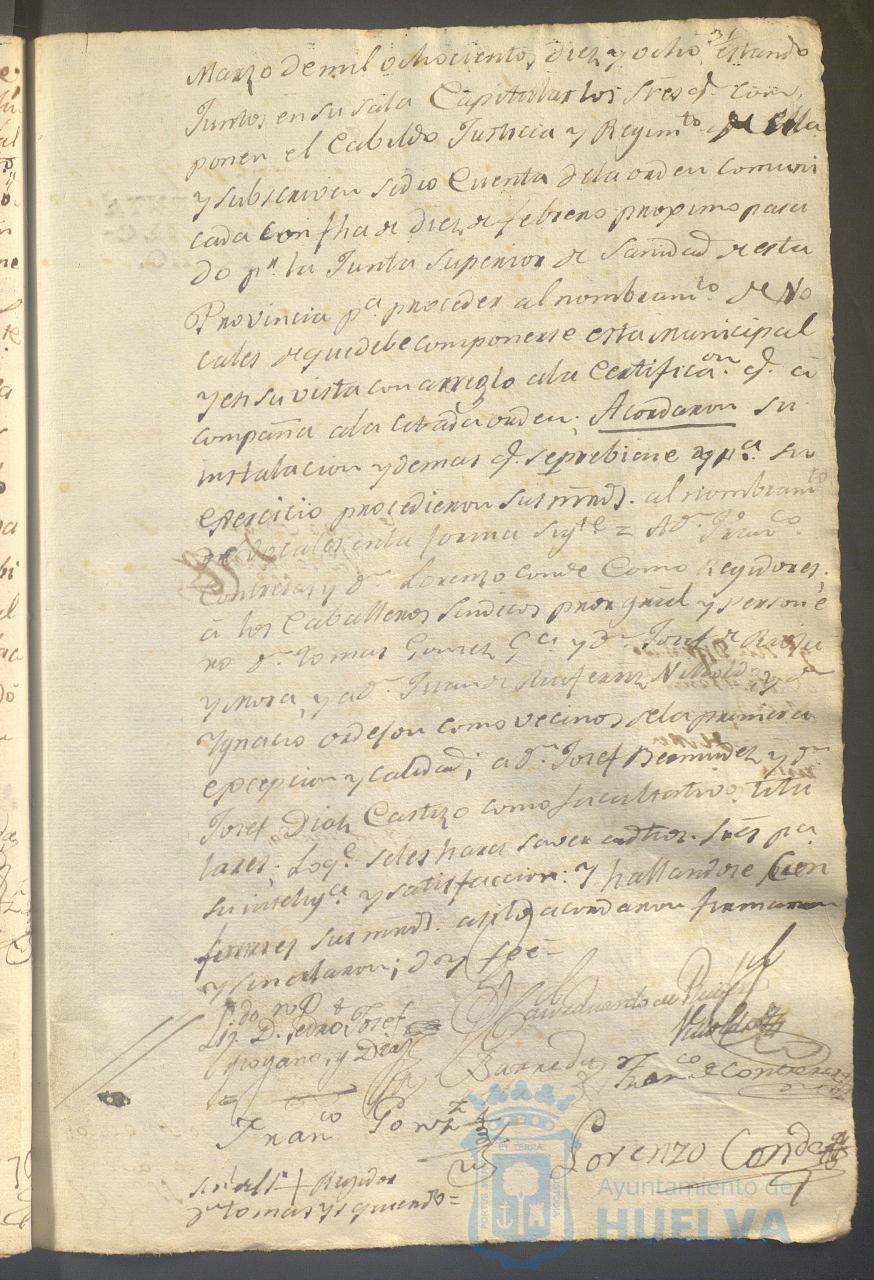 Marzo de mil ochociento, diez y ocho estando
Juntos en su sala Capitular los Sres. q. com,
ponen el Cabildo Justicia y Regim.to de ella
y subscriven se dio Cuenta dela orden comuni
cada con fha de diez de febrero proximo pasa
do p.r la Junta Superior de Sanidad de esta
Provincia p.a proceder al nombram.to de Vo
cales de que debe componerse esta Municipal
y en su vista con arreglo ala Certifica.on q. a
compaña ala citada orden; Acordaron su
instalacion y demas q. se prebiene y p.a su
exercicio procedieron sus mrds. al nombram.to
de vocales enla forma sig.te = A d.n Fran.co
Contreras y d.n Lorenzo Conde Como Regidores,
a los Caballeros Sindicos pror gral y Persone
ro d.n Tomas Gomez G.a y d.n Josef de
y Mora, y a d.n Juan de y d.n
Ygnacio ordejon como vecinos dela primera
excepcion y calidad; a d.n Josef Bermudez y d.n
Josef Diaz Castizo como facultativos titu
lares. Lo q.e seles hara saver a dhos. Sres pa.
su intelig.a y satisfaccion: Y hallandose
sus mrds. asi lo acordaron firmaron
y señalaron; doy feé =
Liz.do D. Pedro Josef
Moyano, y Diaz
Barreda
Fran.co de Contreras
Fran.co Gonz.z
Lorenzo Conde
Señal + Regidor
d.n Tomas Ysquierdo =
ET TERRAE
PORTUS MARIS
CUSTODIA
Ayuntamiento de
HUELVA